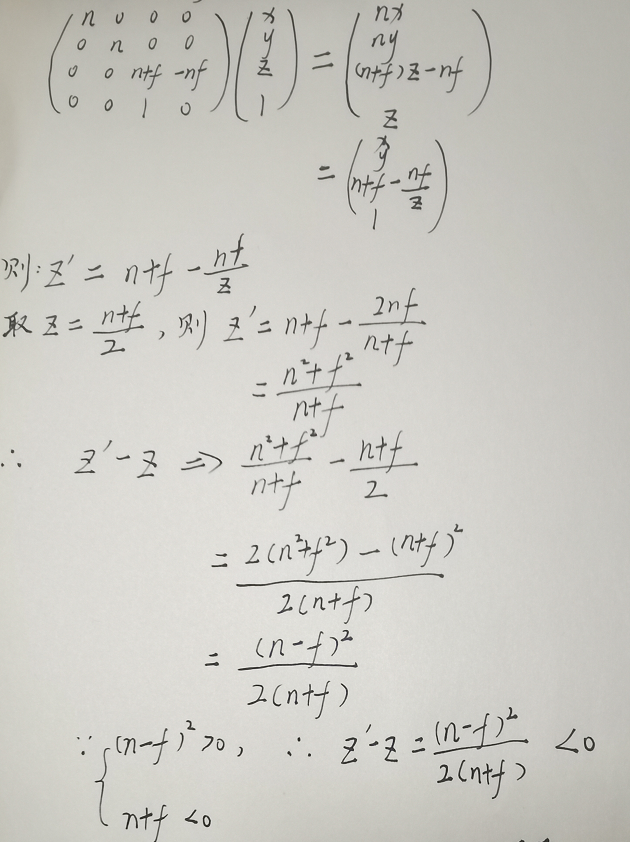 (n 0 0 0
0 n 0 0
0 0 n+f -nf
0 0 1 0) (x
y
z
1) = (nx
ny
(n+f)z-nf
z)
= (x
y
n+f - nf/z
1)
则: z' = n+f - nf/z
取 z = (n+f)/2, 则 z' = n+f - 2nf/(n+f)
= (n²+f²)/(n+f)
∴ z'-z ⇒ (n²+f²)/(n+f) - (n+f)/2
= (2(n²+f²) - (n+f)²)/(2(n+f))
= (n-f)²/(2(n+f))
∵ { (n-f)² >0, ∴ z'-z = (n-f)²/(2(n+f)) <0
n+f <0